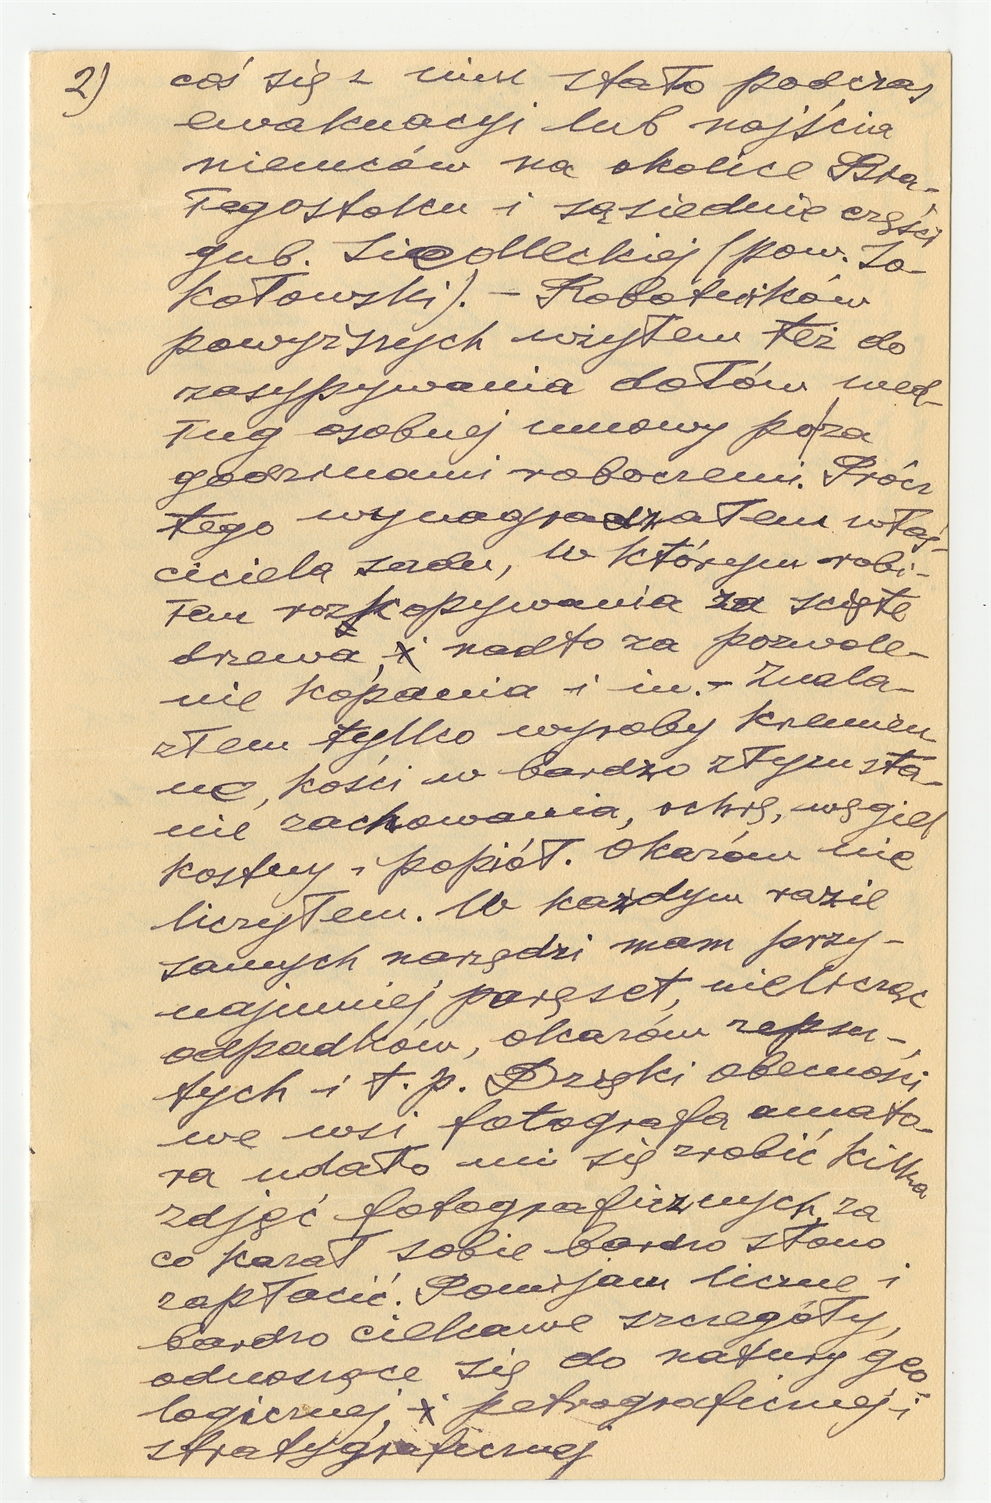 2) coś się z nim stało podczas
ewakuacyi lub najścia
niemców na okolice Bia-
łegostoku i sąsiednie części
gub. Siedlleckiej (pow. So-
kołowski). – Robotników
powyższych użyłem też do
zasypywania dołów wed-
ług osobnej umowy poza
godzinami roboczemi. Prócz
tego wynagradzałem właś-
ciciela sadu, w którym robi-
łem rozkopywania za ścięte
drzewa, i nadto za pozwole-
nie kopania i in. – Znala-
złem tylko wyroby krzemien-
ne, kości w bardzo złym sta-
nie zachowania, ochrę, węgiel
kostny i popiół. Okazów nie
liczyłem. W każdym razie
samych narzędzi mam przy-
najmniej paręset, nielicząc
odpadków, okazów zepsu-
tych i t. p. Dzięki obecności
we wsi fotografa amato-
ra udało mi się zrobić kilka
zdjęć fotograficznych, za
co kazał sobie bardzo słono
zapłacić. Pomijam liczne i
bardzo ciekawe szczegóły,
odnoszące się do natury geo-
logicznej, i petrograficznej i
stratygraficznej